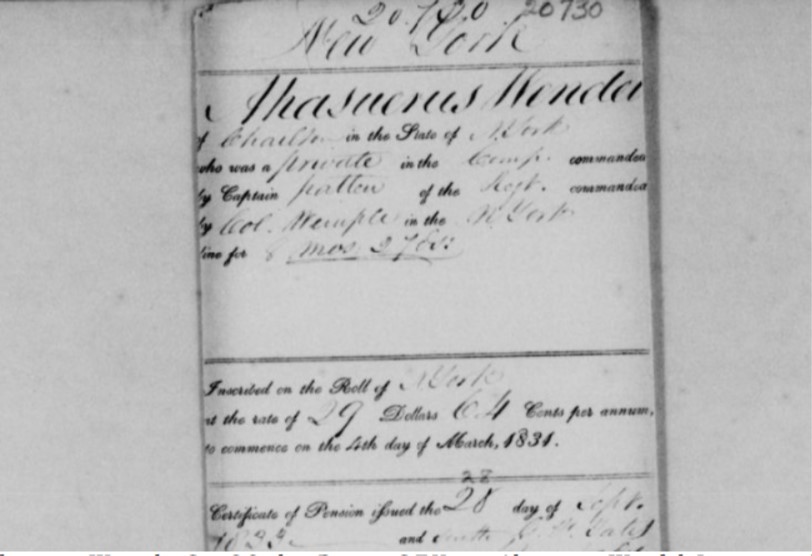 20.720 20730
New York
Ahasuerus Wendel
of Charlton in the State of N. York
who was a private in the Comp. commanded
by Captain patten of the Regt. commanded
by Col. Wemple in the N. York
line for 8 mos 27 ds
Inscribed on the Roll of N. York
at the rate of 29 Dollars 64 Cents per annum,
to commence on the 4th day of March, 1831.
28
Certificate of Pension issued the 28 day of Sept.
and